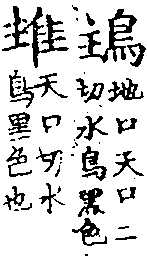 地口天口二
切水鳥黑色
天口切水
鳥黑色也